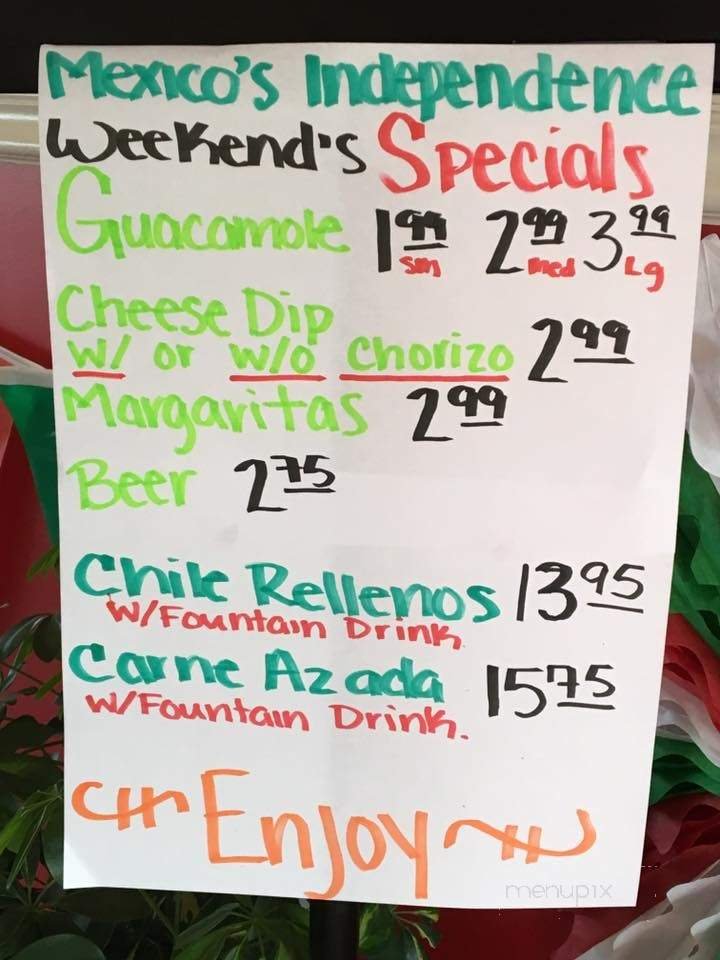 Mexico's Independence
Weekend's Specials
Guacamole 1.99 sm 2.99 med 3.99 Lg
Cheese Dip
w/ or w/o chorizo 2.99
Margaritas 2.99
Beer 2.75
Chile Rellenos 13.95
W/Fountain Drink
Carne Azada 15.75
W/Fountain Drink.
Enjoy
menupix